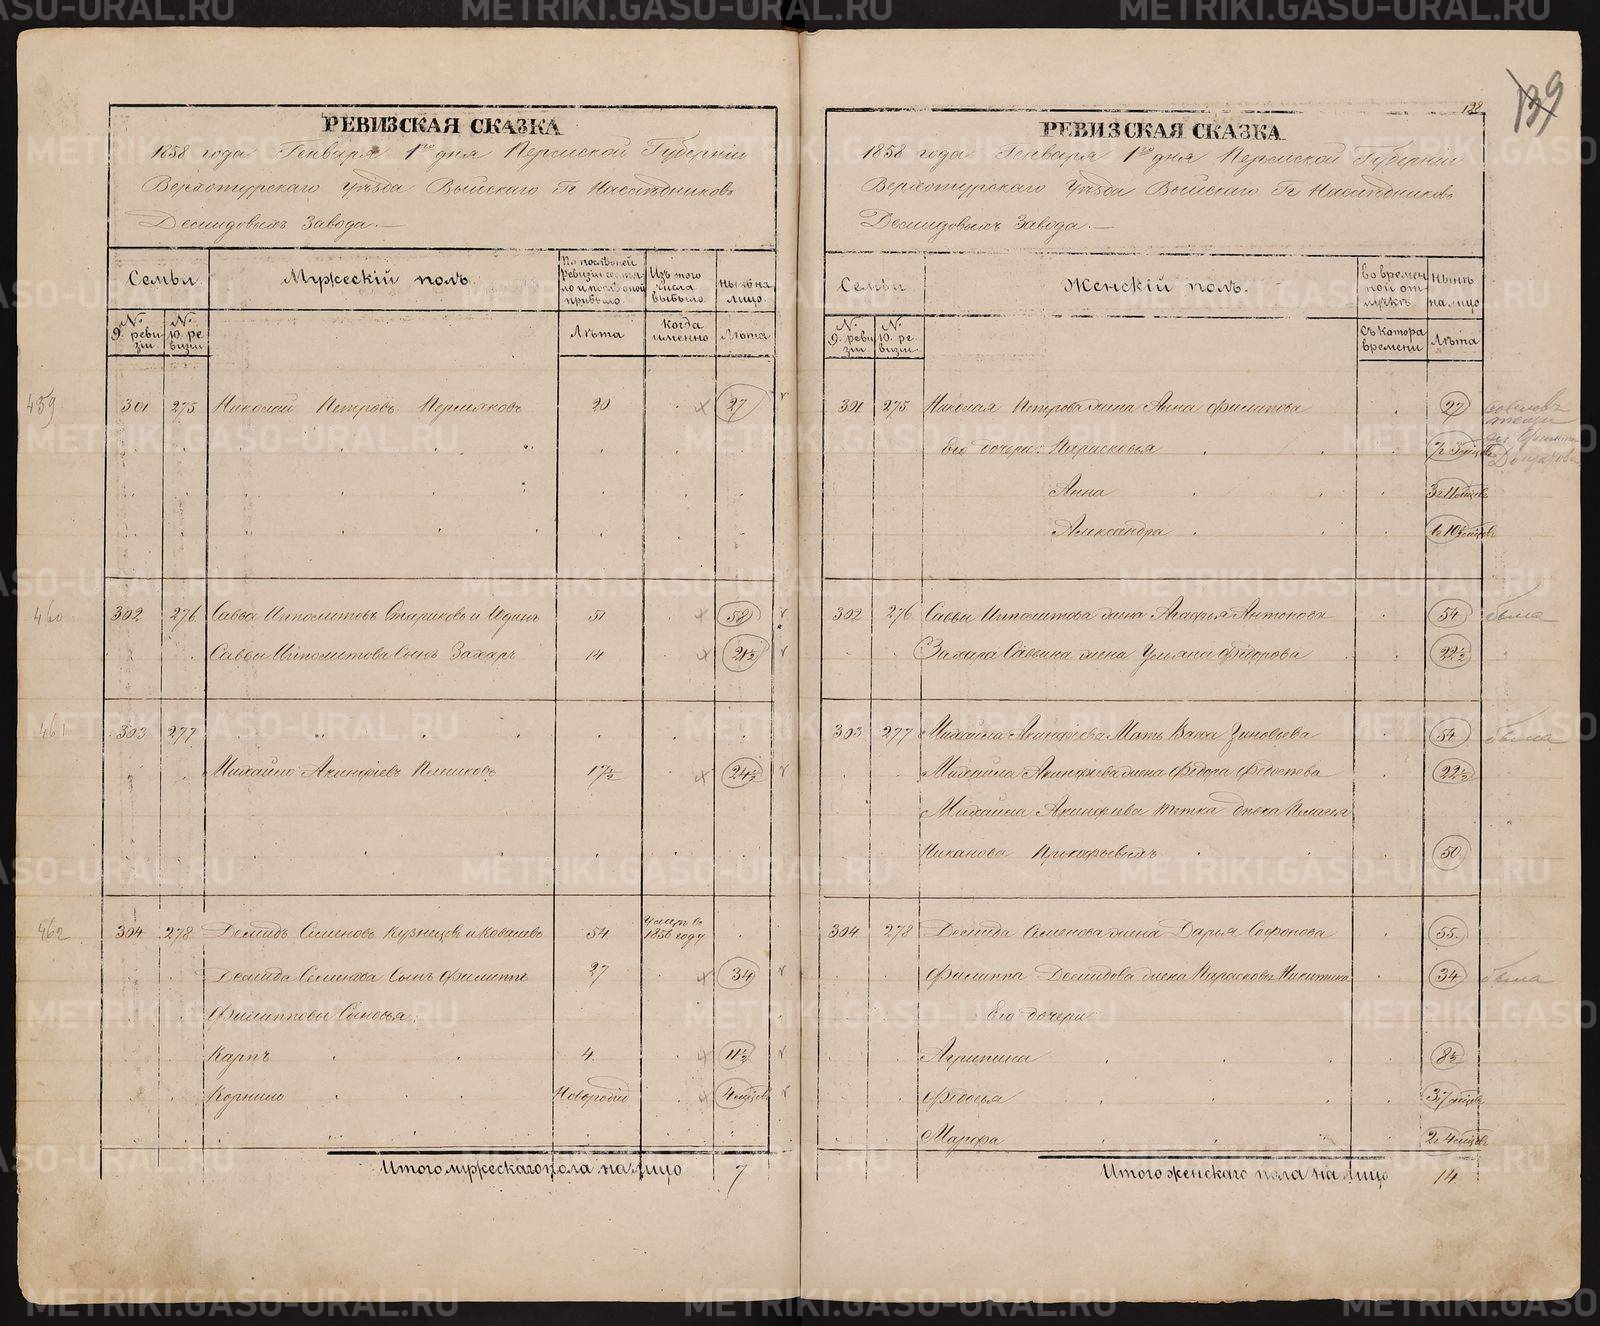 139
128
РЕВИЗСКАЯ СКАЗКА
1858 года Генваря 1го дня Пермской Губерніи
Верхотурскаго Уѣзда Выйскаго Гг Наслѣдниковъ
Демидовыхъ Завода.
Семьи
Мужескій полъ.
По послѣдней ревизіи состояло и послѣ оной прибыло.
Изъ того числа выбыло.
Нынѣ на лицо.
№ 9. ревизіи
№ 10. ревизіи
Лѣта
Когда именно
Лѣта
459 301 275 Николай Петровъ Пермяковъ 20 27
460 302 276 Савва Ипполитовъ Стариковъ и Юдинъ 51 58
Саввы Ипполитова Сынъ Захаръ 14 21½
461 303 277
Михайло Акинфіевъ 17½ 24½
462 304 278 Демидъ Семеновъ Кузнецовъ и Ковалевъ 54 Умеръ въ 1856 году
Демида Семенова Сынъ Филиппъ 27 34
Филипповы Сыновья:
Карпъ 4 11½
Корнило Новорожд 4 мѣсцовъ
Итого мужескаго пола на лицо 7
РЕВИЗСКАЯ СКАЗКА
1858 года Генваря 1го дня Пермской Губерніи
Верхотурскаго Уѣзда Выйскаго Гг Наслѣдниковъ
Демидовыхъ Завода.
Семьи
Женскій полъ.
во временной отлучкѣ
Нынѣ на лицо
№ 9. ревизіи
№ 10. ревизіи
Съ котора времени
Лѣта
301 275 Николая Петрова жена Анна Филипова 27
Его дочери: Парасковья
Анна 3 г 11 мѣсцовъ
Александра
302 276 Саввы Ипполитова жена Агафья Антонова 54
Захара Саввина жена Ульяна Федорова 22½
303 277 Михайла Акинфіева Мать Васса Зиновьева 54
Михайла Акинфіева жена Федора Федосѣева 22½
Михайла Акинфіева тетка дѣвка Пелагея
Никанова Прокофьевыхъ 50
304 278 Демида Семенова жена Дарья Софонова 55
Филиппа Демидова жена Парасковья Никитина 34
Его дочери:
Агрипина 8½
Федосья 3 г 7 мѣсцовъ
Марфа 2 г 4 мѣсцовъ
Итого женскаго пола на лицо 14
METRIKI.GASO-URAL.RU